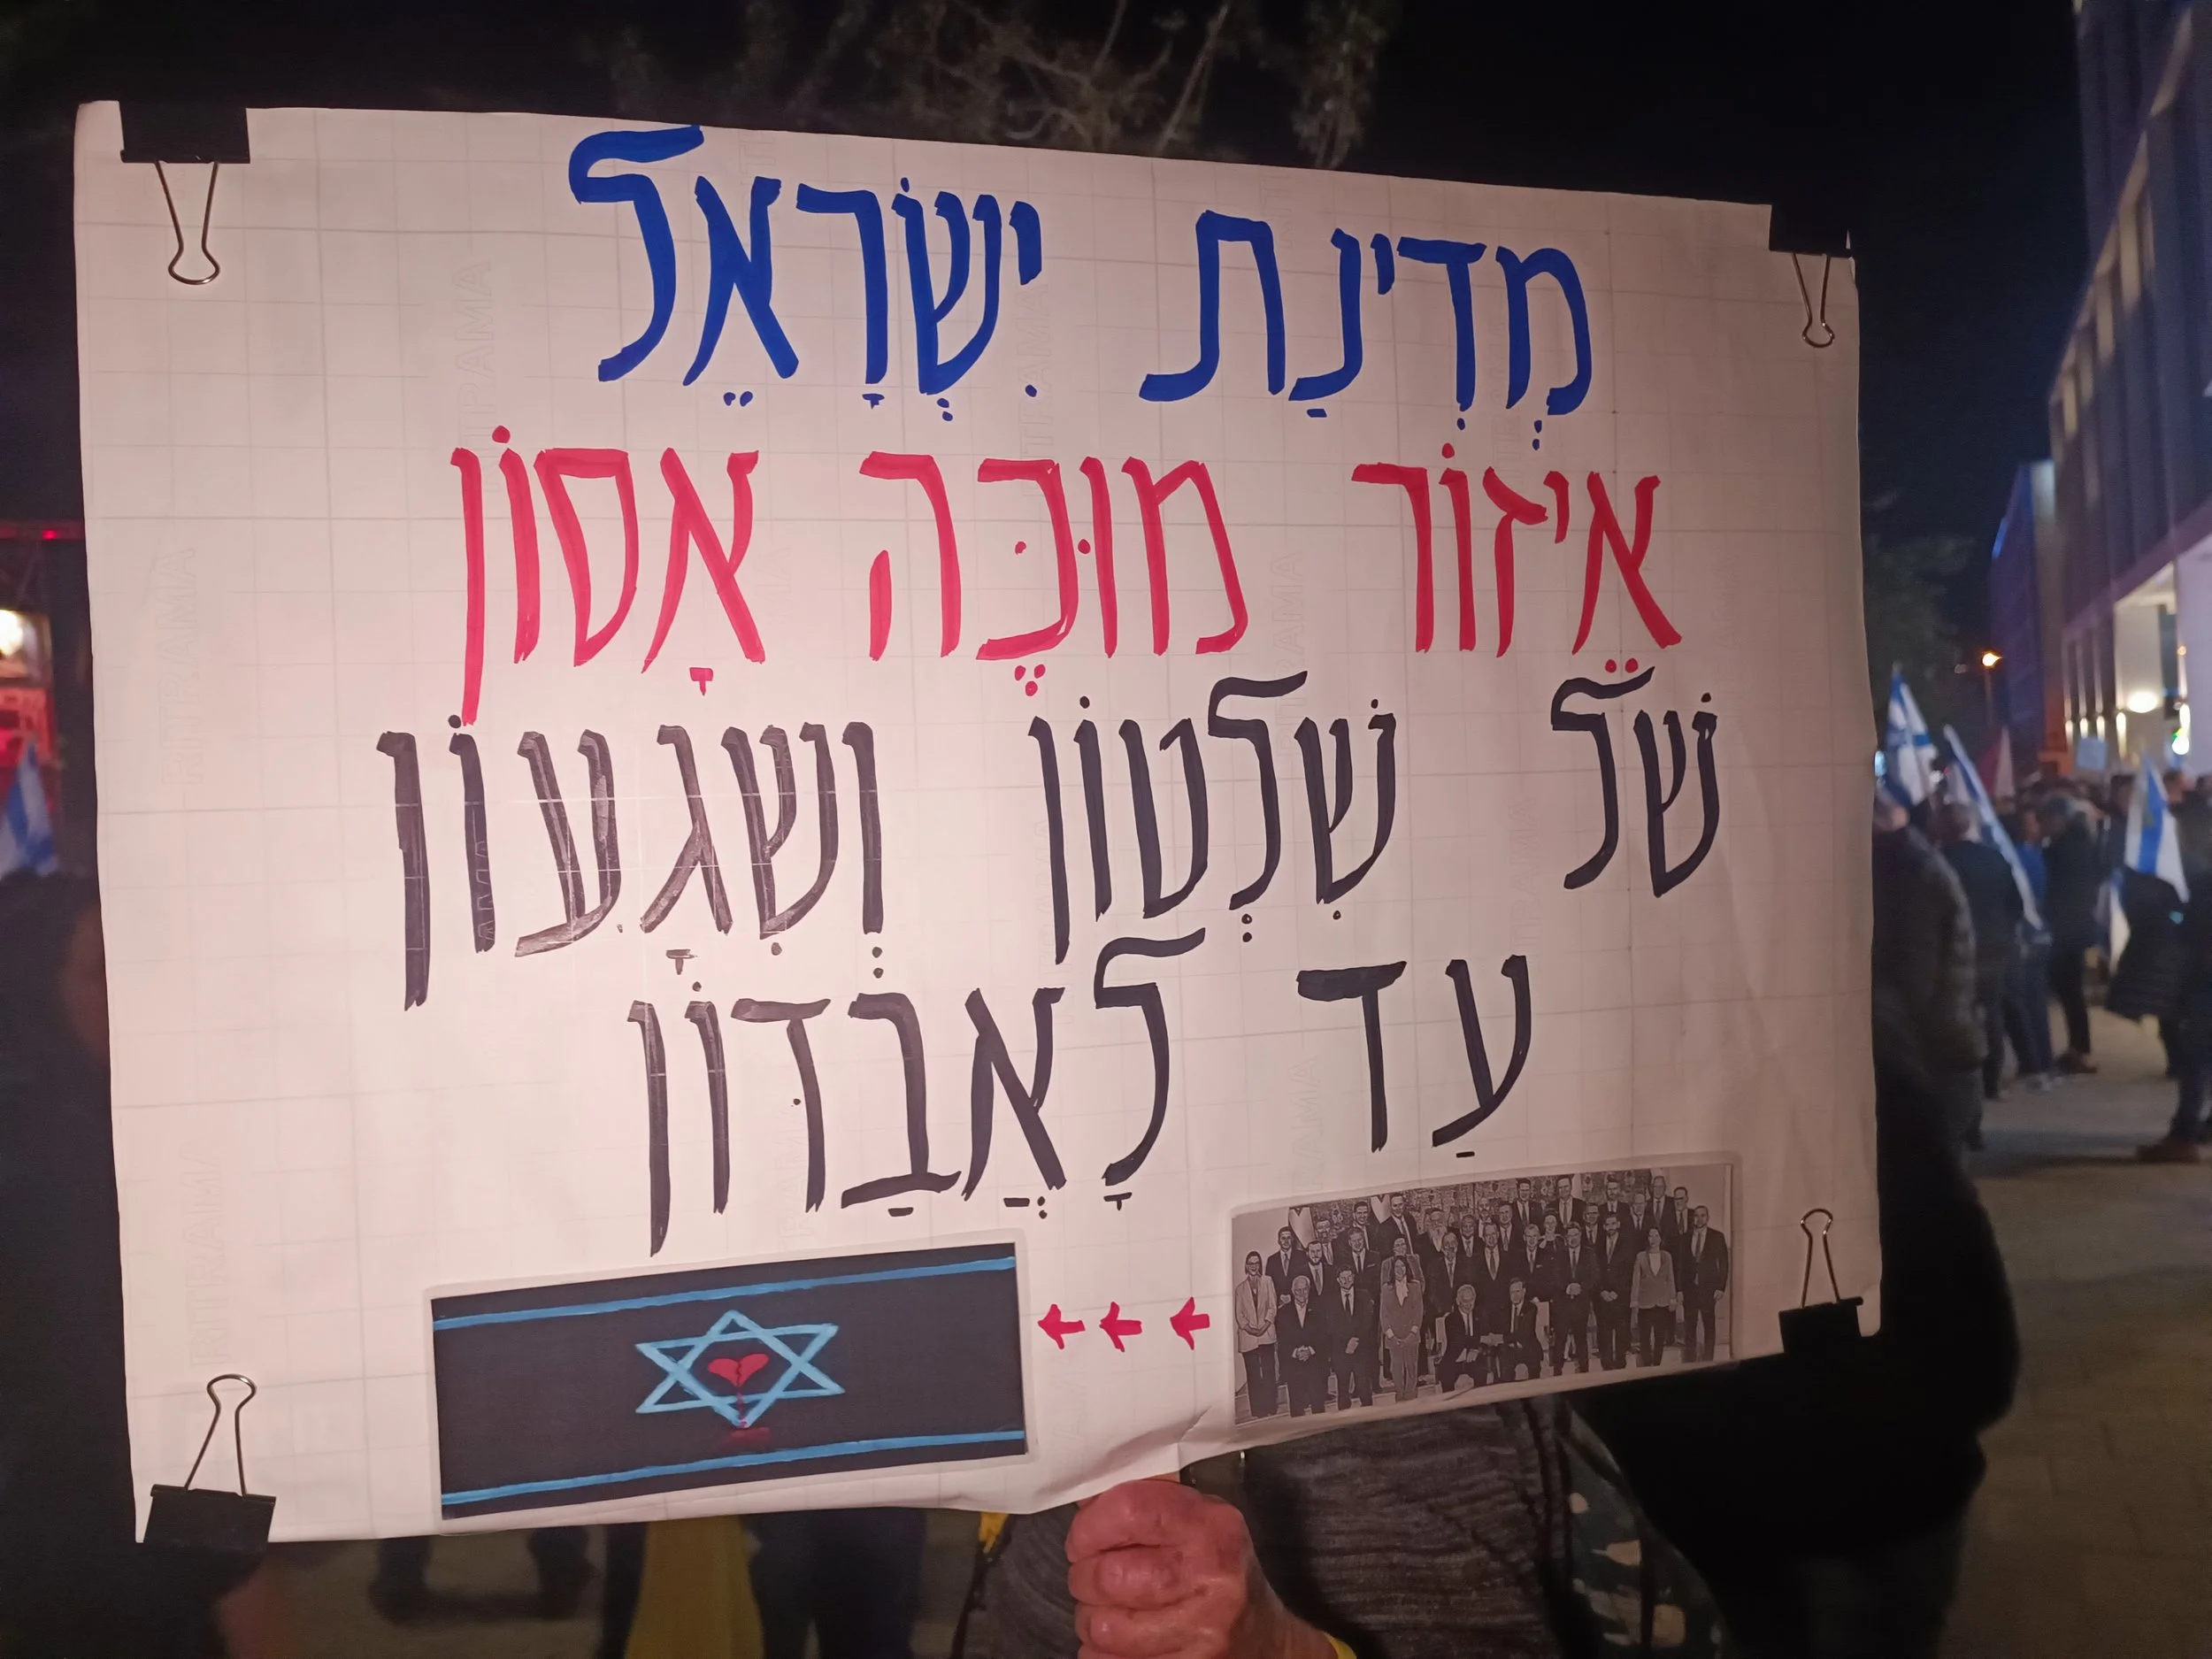 מְדִינַת יִשְׂרָאֵל
אֵיזוֹר מוּכֶּה אָסוֹן
שֶׁל שִׁלְטוֹן וְשִׁגָעוֹן
עַד לָאֲבַדּוֹן